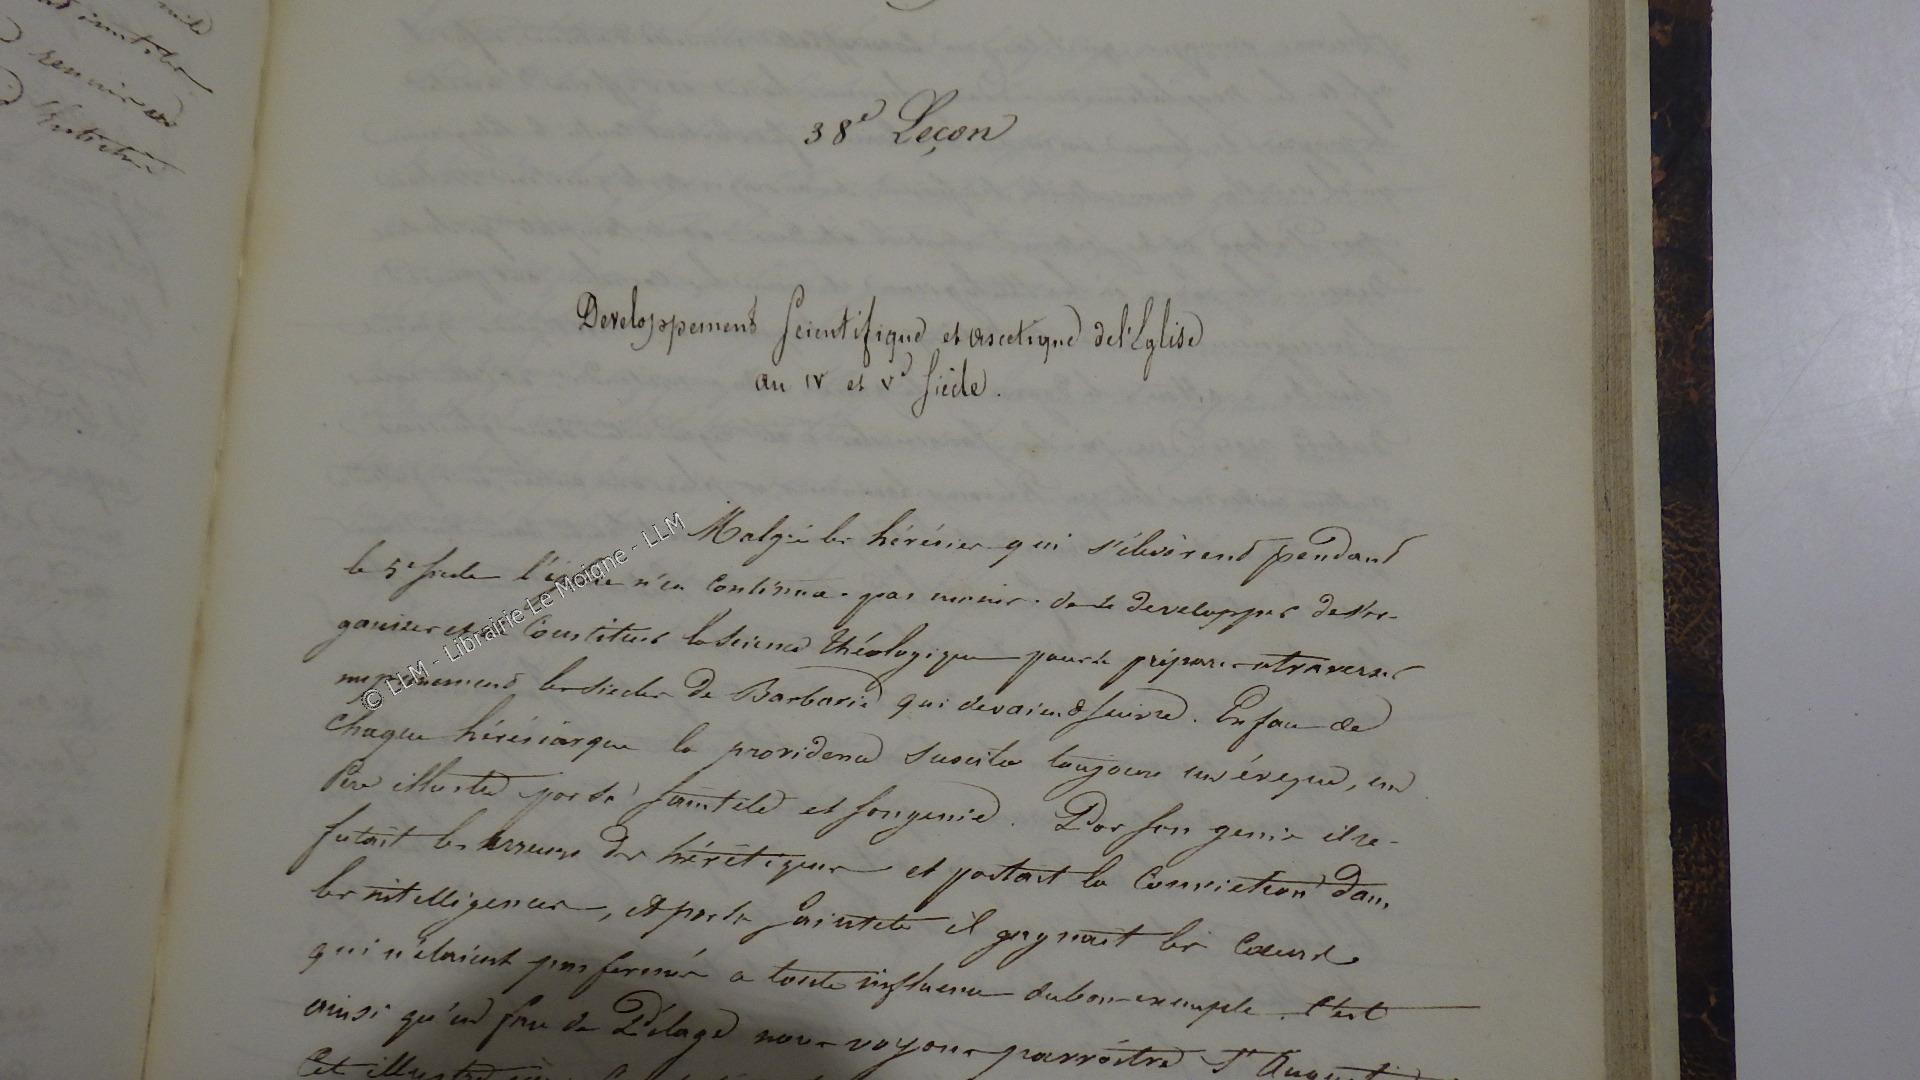 38e Leçon
Developpement Scientifique et ascetique de l'Eglise
au IV et Ve Siècle.
Malgré les hérésies qui s'élevèrent pendant
le 5e siecle l'église n'en continua pas moins de se developper de s'or-
ganiser et de Constituer la Science théologique pour se préparer a traverser
les siecles de Barbarie qui devaient suivre. En face de
chaque hérésiarque la providence suscita toujours un éveque, un
Père illustre par sa sainteté et son genie. Par son genie il re-
futait les erreurs des hérétiques et portait la Conviction dans
les intelligences, et par sa sainteté il gagnait les Coeurs
qui n'étaient pas fermés a toute influence du bon exemple. C'est
ainsi qu'en face de Pélage nous voyons parroitre St August
Cet illustre
© LLM - Librairie Le Moigne - LLM